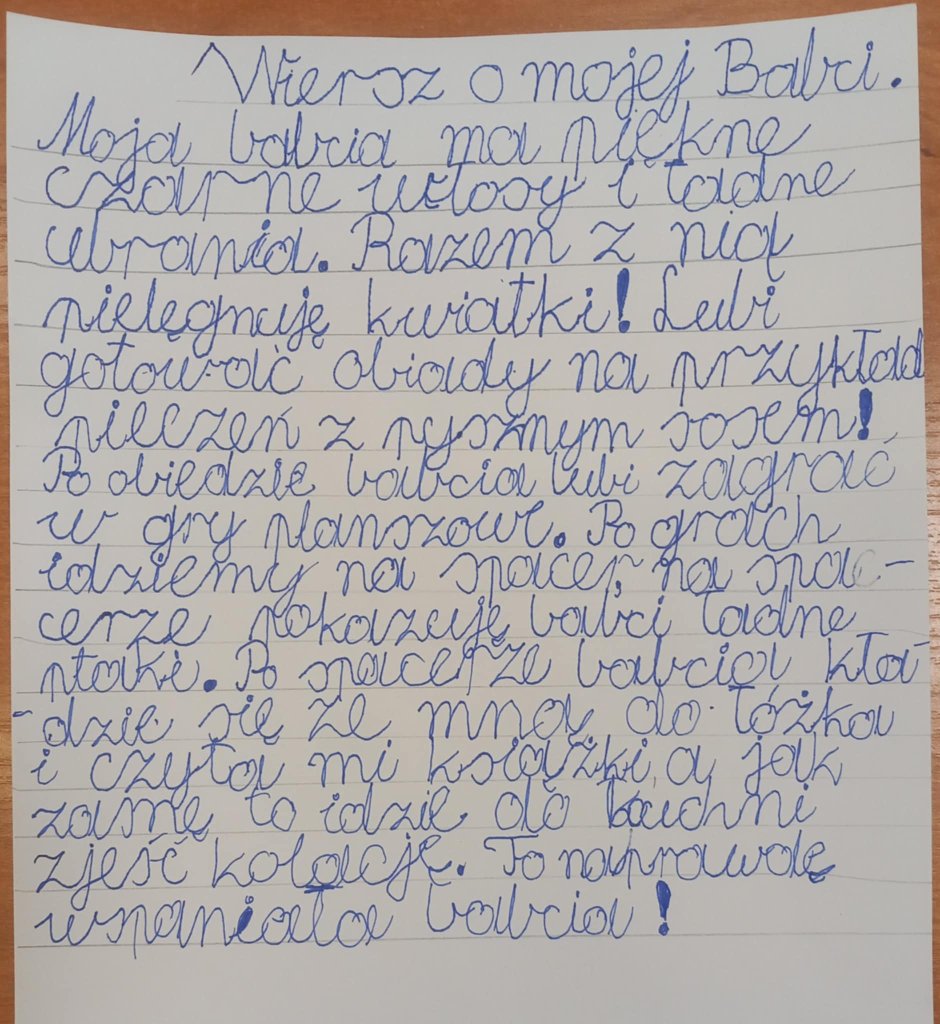 Wiersz o mojej Babci.
Moja babcia ma piękne
czarne włosy i ładne
ubrania. Razem z nią
pielęgnuję kwiatki! Lubi
gotować obiady na przykład
pieczeń z pysznym sosem!
Po obiedzie babcia lubi zagrać
w gry planszowe. Po grach
idziemy na spacer, na spac-
cerze pokazuję babci ładne
ptaki. Po spacerze babcia kła-
-dzie się ze mną do łóżka
i czyta mi książki, a jak
zasnę to idzie do kuchni
zjeść kolację. To naprawdę
wspaniała babcia!